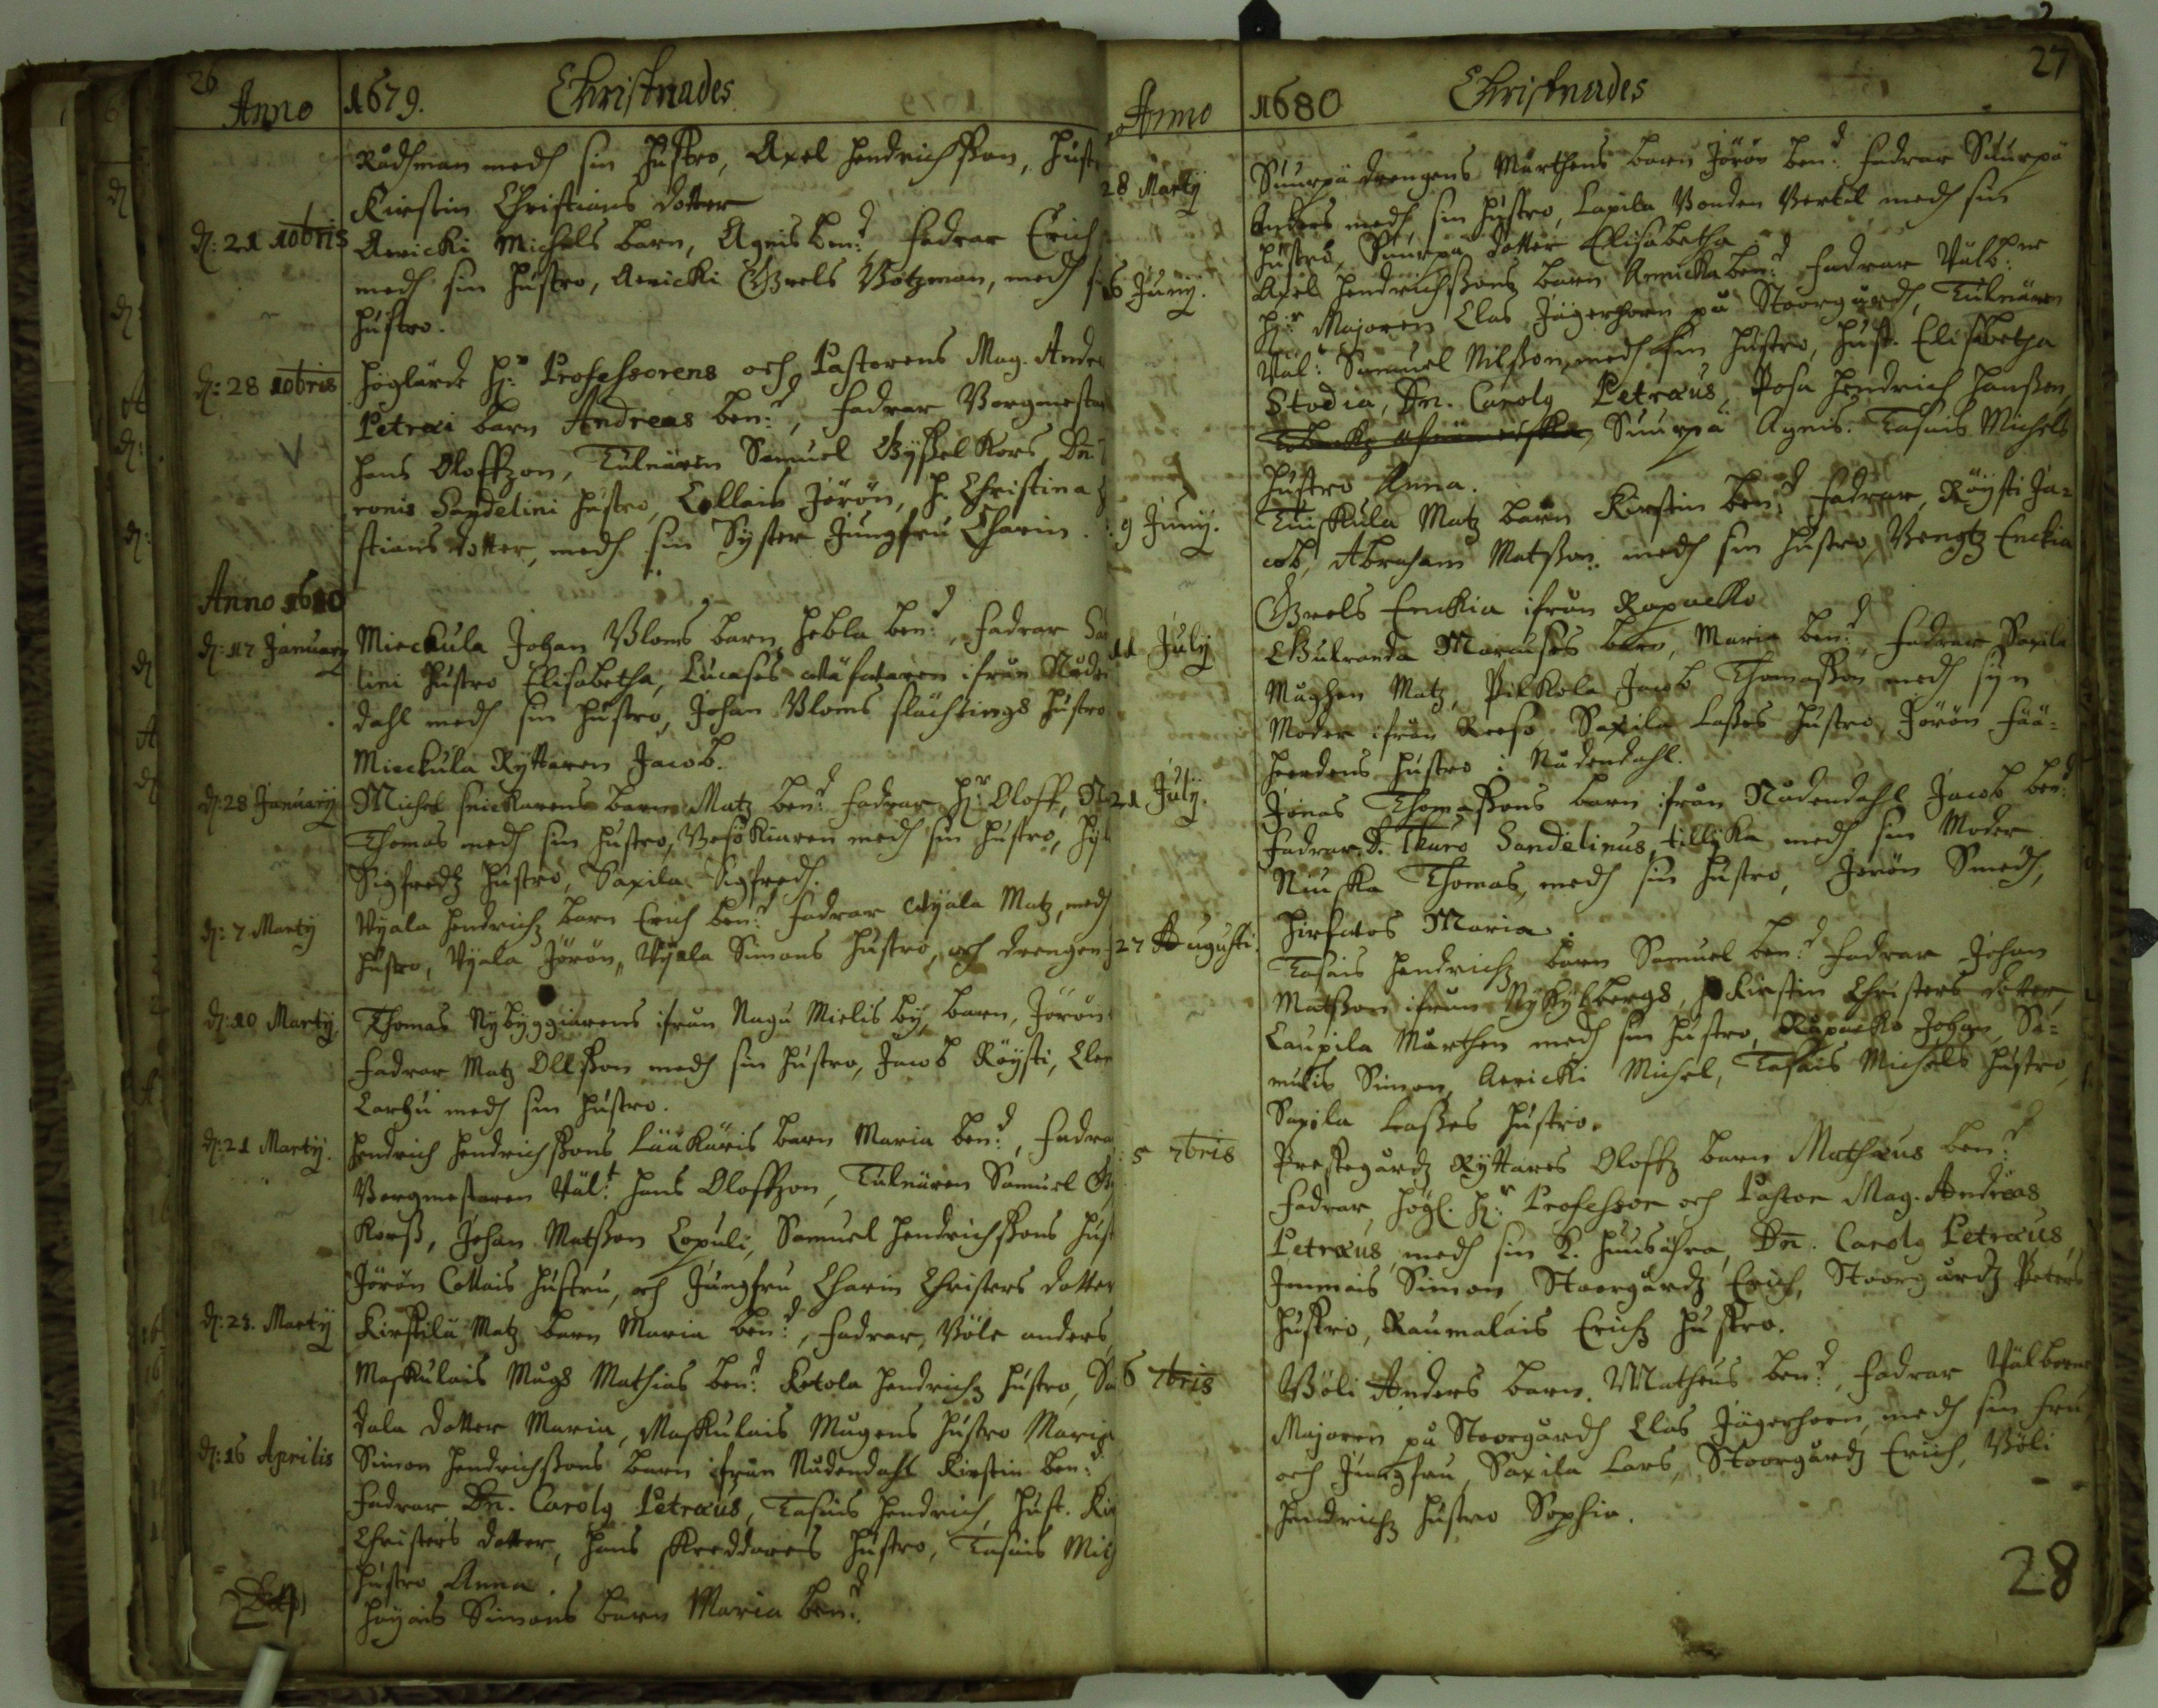 26
Anno 1679. Christnades
Rådhman medh sin hustro, Axel Hendrichsson, Hust
Kirstin Christians dotter
d: 21 10bris Awicki Michels barn, Agnis ben:d, Fadrar Erich
medh sin hustro, Awicki Grels Botzman, medh si
hustro.
d: 28 10bris Höglärde H:r Professorens och Pastorens Mag. Andre
Petræi barn Andreas ben:d, Fadrar Borgmesta
Hans Oloffzon, Tulnären Samuel Gysselkors, Dn:
ronis Sandelini hustro, Collais Jörön, H. Christina
stians dotter, medh sin Syster Jungfru Charin.
Anno 1680
d: 17 January Mieckula Johan Bloms barn Hebla ben:d, Fadrar Sa
lini hustro Elisabetha, Lucases ifrån Nåden
dahl medh sin hustro, Johan Bloms slächtings hustro
Mieckula Ryttaren Jacob.
d: 28 Januarij Michel snickarens barn Matz ben:d Fadrar H:r Oloff,
Thomas medh sin hustro, Besökiaren medh sin hustro,
Sigfredz hustro, Saxila Sigfredh.
d: 7 Martij Vyala Hendrichz barn Erich ben:d Fadrar Vyala Matz, medh
hustro, Vyala Jörön, Vyala Simons hustro, och drengen
d: 10 Martij, Thomas Nybyggiarens ifrån Nagu Mielis by, barn, Jörön
Fadrar Matz Ollsson medh sin hustro, Jacob Röysti, Cle
Larhu medh sin hustro.
d: 21 Martij. Hendrich Hendrichssons Lääkäris barn Maria ben:d, Fadra
Borgmestaren Väl:t Hans Oloffzon, Tulnären Samuel Gy
Korss, Johan Matsson Copuli, Samuel Hendrichssons hust
Jörön Collais hustru, och Jungfru Charin Christers dotter
d: 23. Martij Kirstilä Matz barn Maria ben:d, Fadrar, Böle anders,
Maskulais Mågs Mathias ben:d Ketola Hendrichz hustro, Sa
dala dotter Maria, Maskulais Mågens hustro Maria
d: 16 Aprilis Simon Hendrichssons barn ifrån Nådendahl Kirstin ben:d
Fadrar Dn. Carolg Petræus, Tasais Hendrich, Hust. Kir
Christers dotter, Hans Skreddares hustro, Tasais Mich
hustro Anna.
Höyais Simons barn Maria ben:d.
27
Anno 1680 Christnades
28 Martij Suurpä drengens Mårthens barn Jörön ben:d Fadrar Suurpä
Anders medh sin hustro, Lapila Bonden Bertil medh sin
hustro, Suurpä dotter Elisabetha
6 Junij. Axel Hendrichssons barn Annicka ben:d Fadrar Välb:ne
H:r Majoren Clas Jägerhorn på Stoorgårdh, Tulnären
Väl:t Samuel Nilsson medh sin hustro, Hust. Elisabetha
Stodia, Dn. Carolg Petræus, Posa Hendrich Hansson,
Suurpä Agnis. Tasais Michels
hustro Anna.
9 Junij. Tuiskula Matz barn Kirstin ben:d Fadrar, Röysti Ja=
cob, Abraham Matsson medh sin hustro, Bengtz Enckia
Grels Enckia ifrån Rapacko
11 July Gulranda Marcuses barn, Maria ben:d Fadrar Saxila
Måghen Matz, Pilkola Jacob Thomasson medh syn
Moder ifrån Reso Saxila Lasses hustro, Jörön Fää=
herdens hustro i Nådendahl.
21 July. Jonas Thomassons barn ifrån Nådendahl Jacob ben:d
Fadrar D. Thuro Sandelinus tillyka medh sin Moder
Niuska Thomas, medh sin hustro, Jörön Smedh,
Hirkwos Maria.
27 Augusti. Tasais Hendrichz barn Samuel ben:d Fadrar Johan
Matsson ifrån Nykylbergs, H Kirstin Christers dotter,
Laupila Mårthen medh sin hustro, Rapacko Johan, Si=
mulis Simon, Awicki Michel, Tasais Michels hustro,
Saxila Lasses hustro.
5 7bris Prestegårdz Ryttares Oloffz barn Mathæus ben:d
Fadrar, Högl. H:r Professor och Pastor Mag. Andreas
Petræus, medh sin K. Huusähra, Dn. Carolg Petræus,
Immais Simon, Stoorgårdz Erich, Stoorgårdz Peters
hustro, Raumalais Erichz hustro.
6 7bris Böli Anders barn. Matheus ben:d, Fadrar Välborne
Majoren på Stoorgårdh Clas Jägerhorn, medh sin Fru
och Jungfru, Saxila Lars, Stoorgårdz Erich, Böli
Hendrichz hustro Sophia.
28